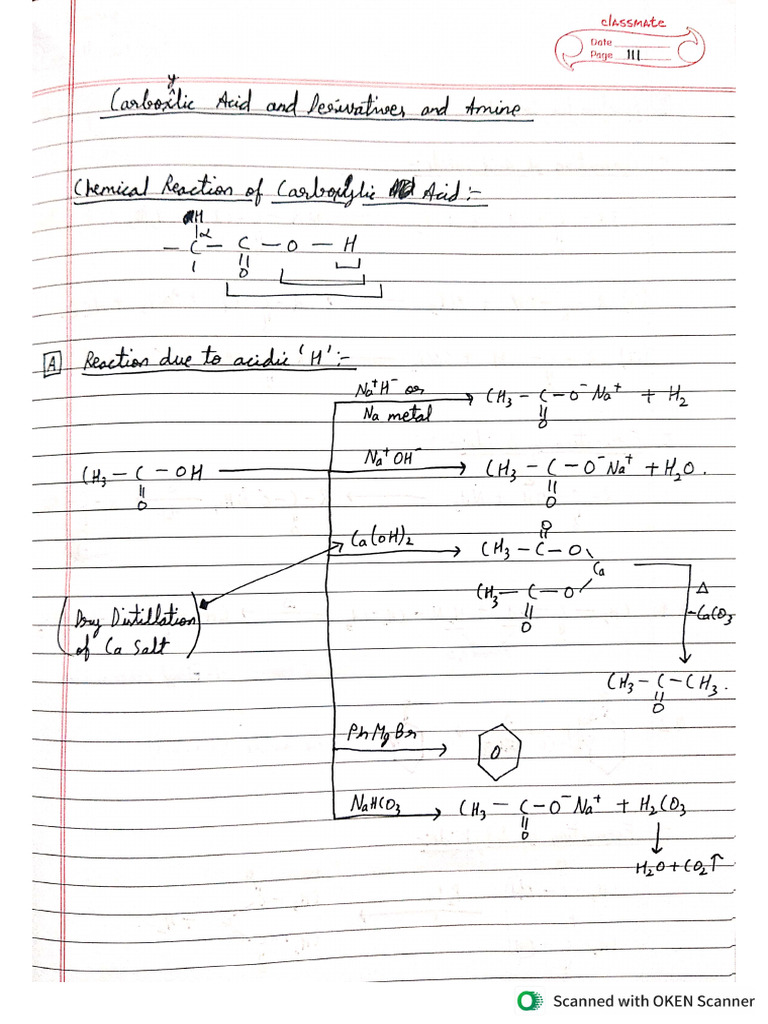 classmate
Date
Page 111
y
Carboxlic Acid and Derivatives and Amine
Chemical Reaction of Carboxylic Acid :-
H
| α
— C — C — O — H
| ||
O
A Reaction due to acidic 'H' :-
Na⁺H⁻ or
Na metal
CH₃ — C — O⁻ Na⁺ + H₂
||
O
CH₃ — C — OH
||
O
Na⁺OH⁻
CH₃ — C — O⁻Na⁺ + H₂O.
||
O
Ca(OH)₂
O
||
CH₃ — C — O
Ca
CH₃ — C — O
||
O
Δ
-CaCO₃
(Dry Distillation
of Ca Salt)
CH₃ — C — CH₃.
||
O
PhMgBr
O
NaHCO₃
CH₃ — C — O⁻ Na⁺ + H₂CO₃
||
O
↓
H₂O + CO₂↑
Scanned with OKEN Scanner